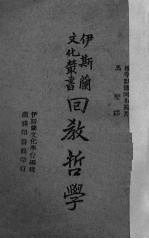 伊斯蘭
文化叢書
回教哲學
馬堅譯
伊斯蘭文化學會編輯
商務印書館印行